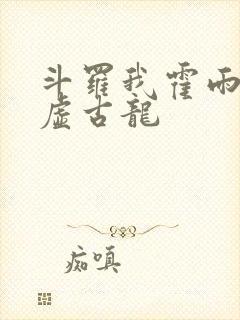 斗羅我霍雨
虛古龍
痴嗔